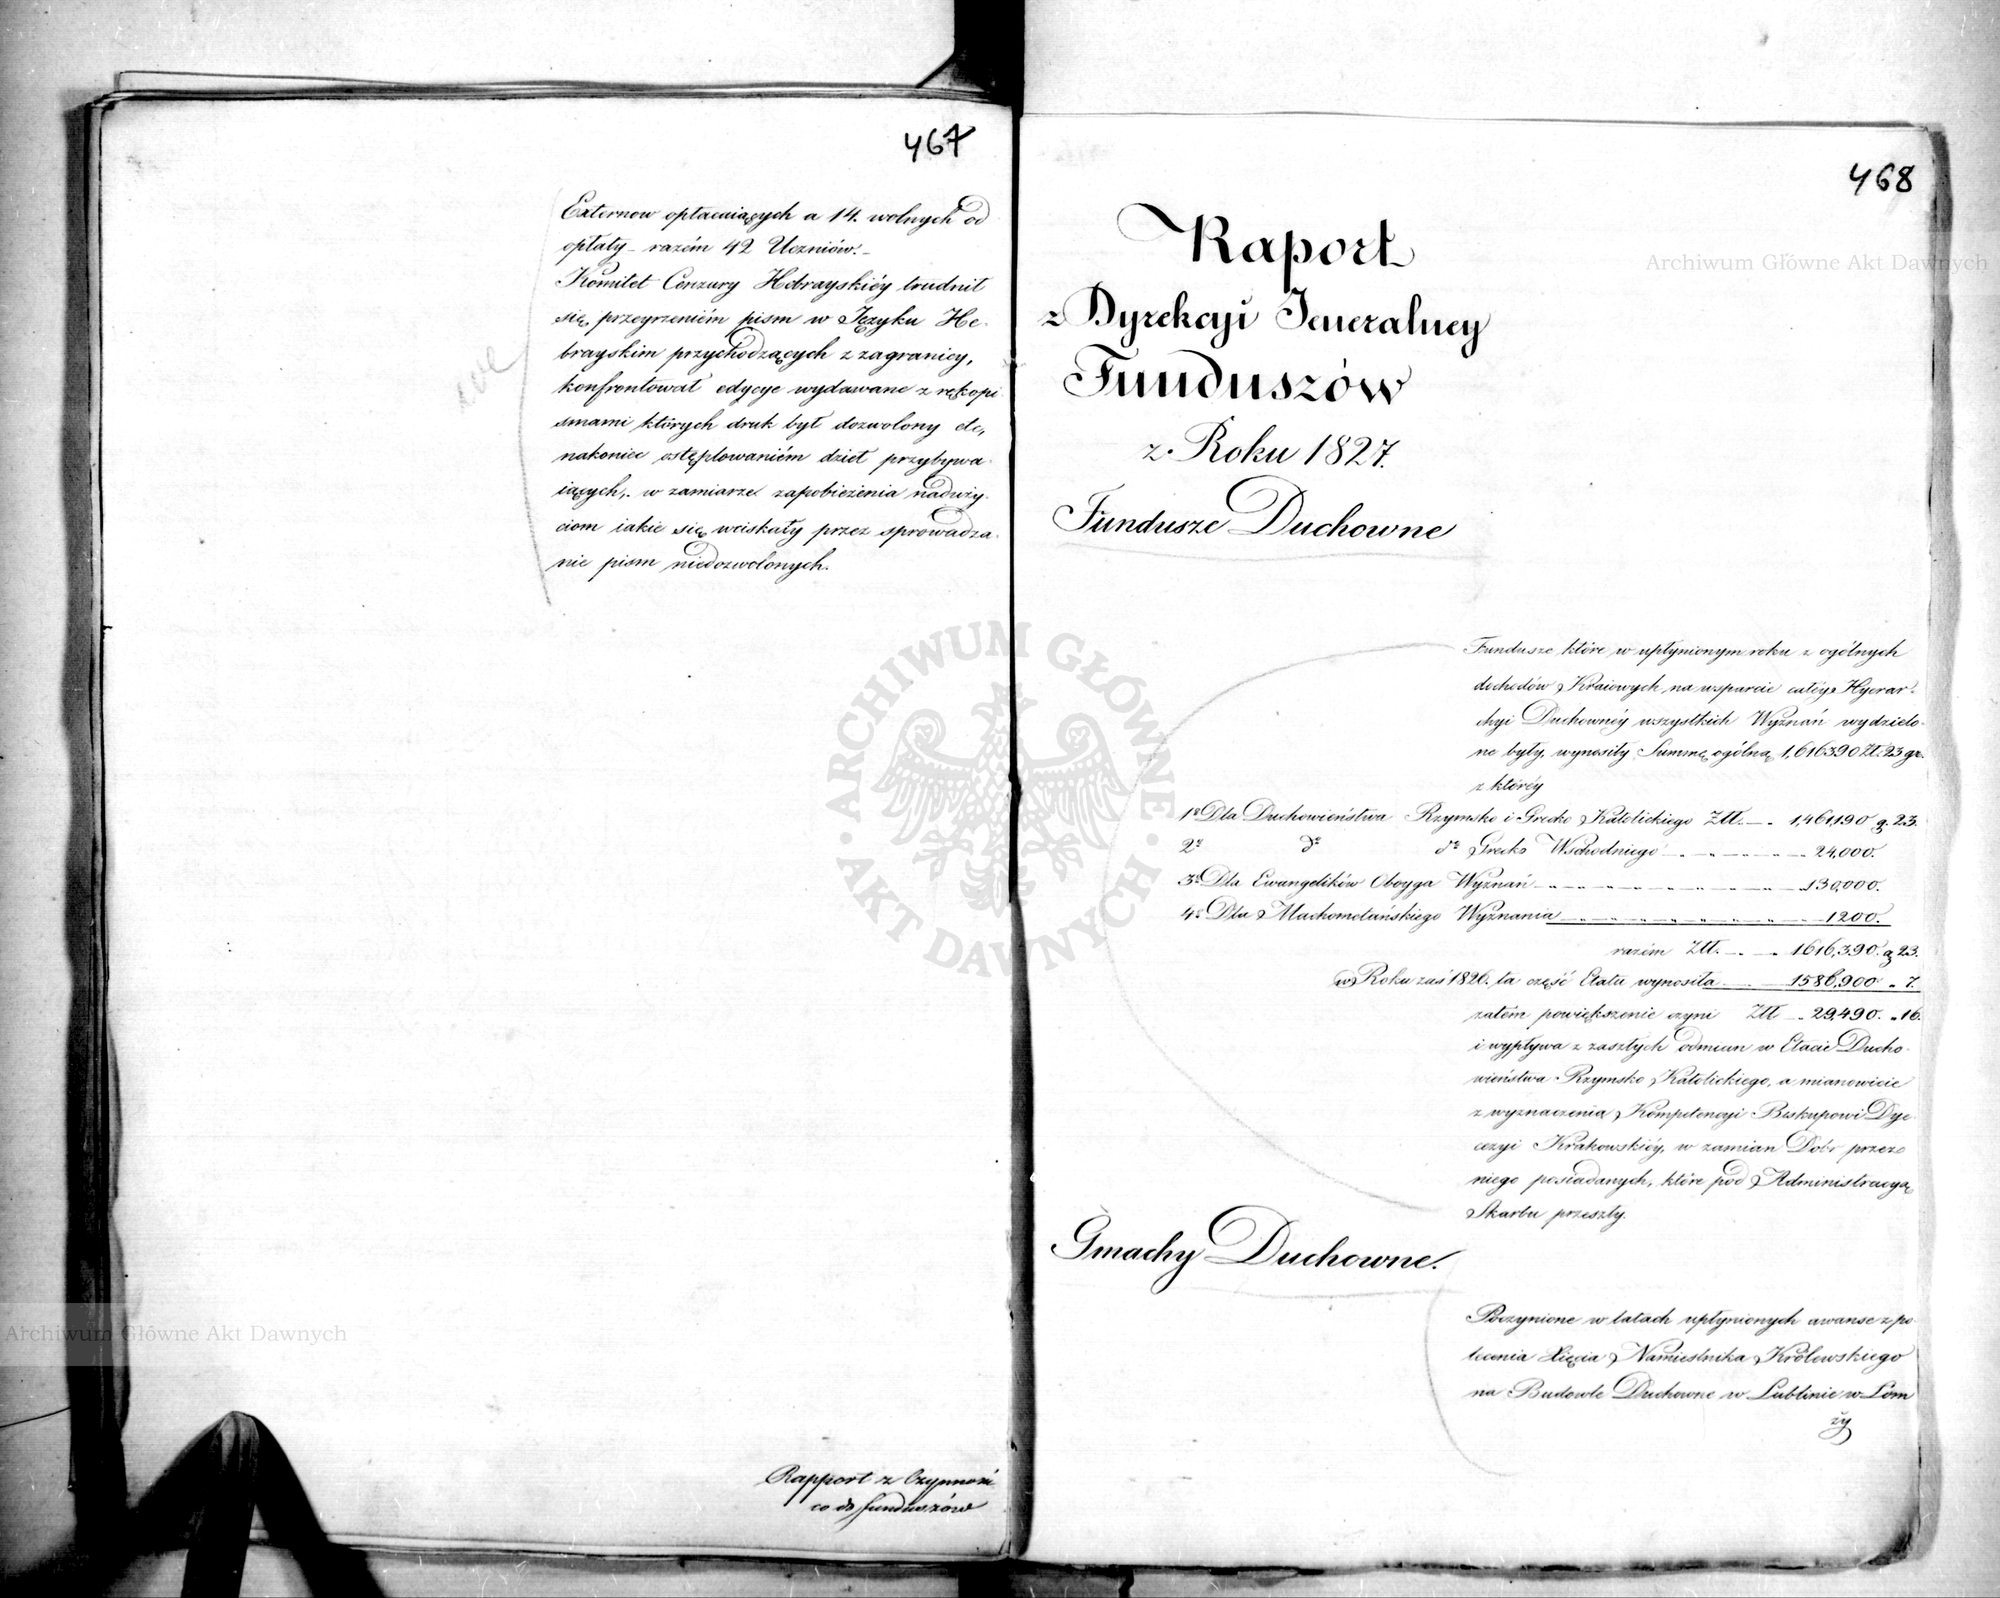 467
Externow opłacaiących a 14. wolnych od
opłaty – razém 42 Uczniów. –
Komitet Cenzury Hebrayskiéy trudnił
się, przeyrzeniém pism w Języku He-
brayskim przychodzących z zagranicy,
konfrontował edycye wydawane z rękopi
smami których druk był dozwolony etc,
nakoniec ostęplowaniém dzieł przybywa-
iących, w zamiarze zapobieżenia naduży-
ciom iakie się wciskały przez sprowadza-
nie pism niedozwolonych.
Rapport z Czynności
co do funduszów
468
Raport
z Dyrekcyi Jeneralney
Funduszów
z Roku 1827.
Fundusze Duchowne
Fundusze które w upłynionym roku z ogólnych
dochodów Kraiowych na wsparcie całéy Hyerar-
chyi Duchownéy wszystkich Wyznań wydzielo-
ne były, wynosiły Summę ogólną 1,616390 Zł. 23 gr.
z któréy
1º Dla Duchowieństwa Rzymsko i Grecko Katolickiego Złł. – . 1,461,190 g. 23.
2º dº dº Grecko Wschodniego – „ – „ – „ – 24,000.
3º Dla Ewangelików Oboyga Wyznań – „ – „ – „ – „ – 130,000.
4º Dla Machometańskiego Wyznania – „ – „ – „ – „ – 1200.
razém Złł. – . – . 1616,390. g 23.
w Roku zaś 1826. ta część Etatu wynosiła – 1586,900 „ 7.
zatém powiększenie czyni Złł – . 29,490. „ 16.
i wypływa z zaszłych odmian w Etacie Ducho-
wieństwa Rzymsko Katolickiego, a mianowicie
z wyznaczenia Kompetencyi Biskupowi Dye-
cezyi Krakowskiéy, w zamian Dóbr przez
niego posiadanych, które pod Administracyą
Skarbu przeszły.
Gmachy Duchowne.
Poczynione w latach upłynionych awanse z po-
lecenia Xięcia Namiestnika Królewskiego
na Budowle Duchowne w Lublinie w Łom
ży
Archiwum Główne Akt Dawnych
Archiwum Główne Akt Dawnych
ARCHIWUM GŁÓWNE · AKT DAWNYCH ·